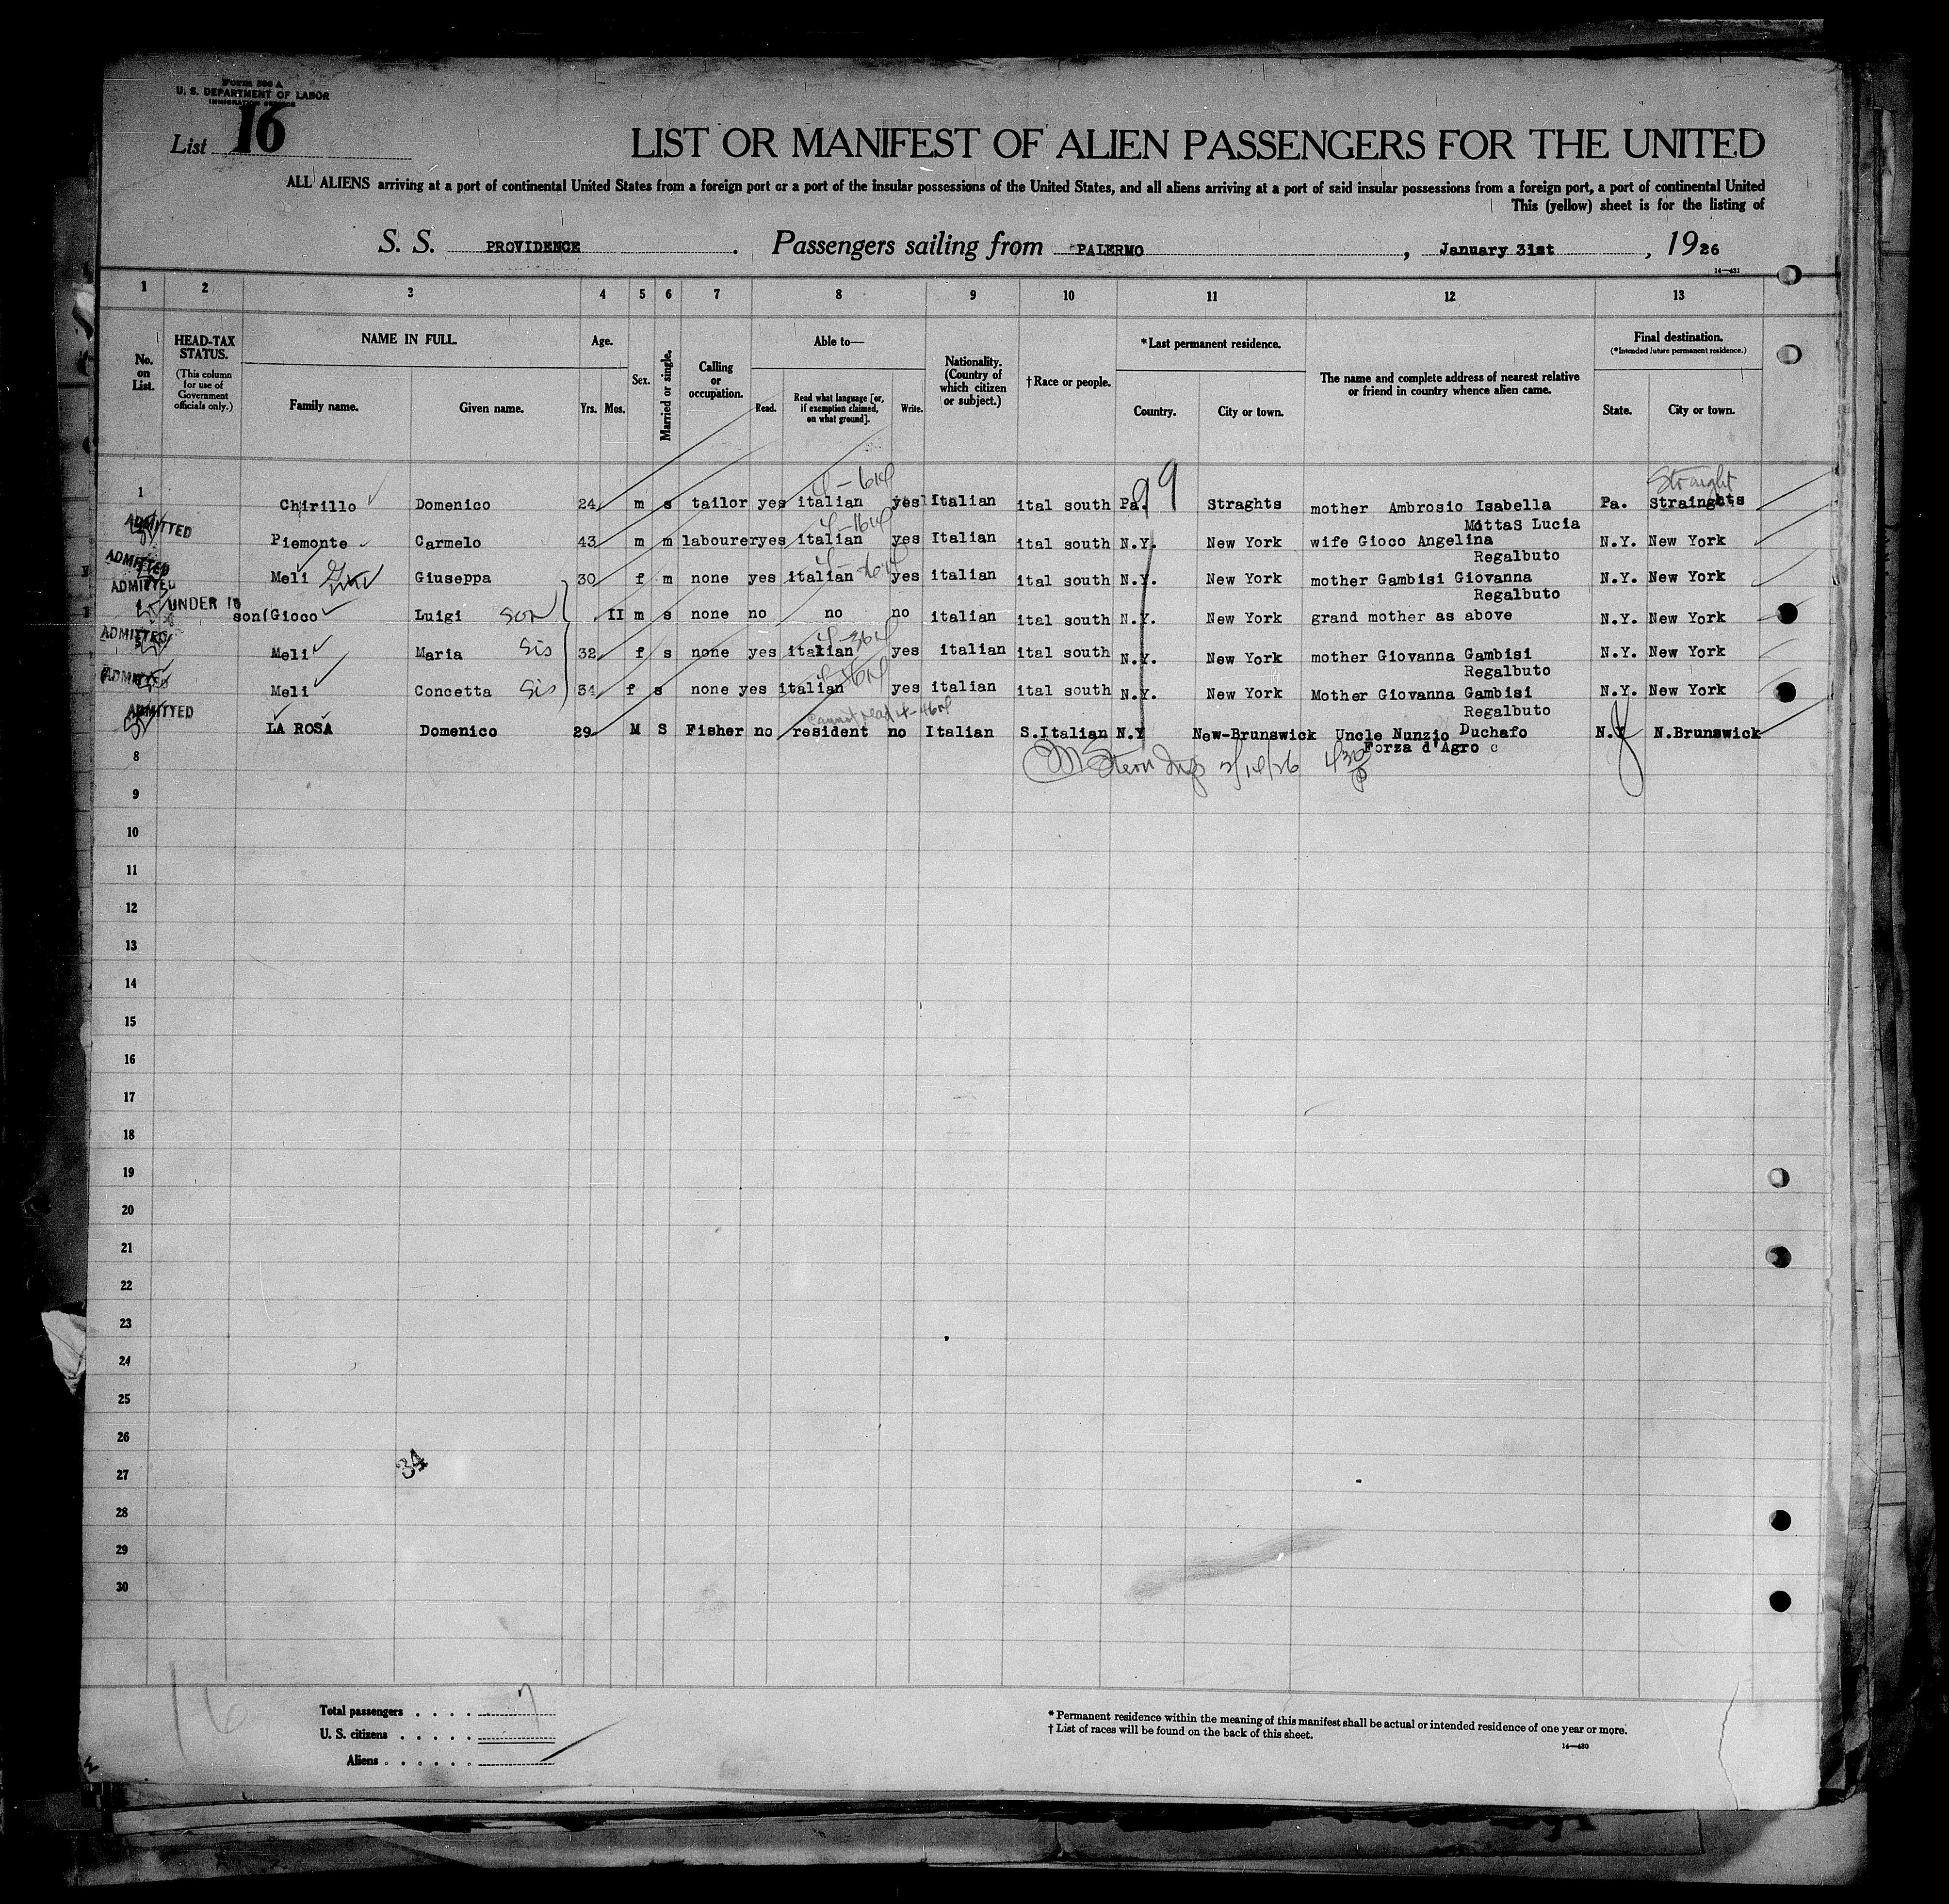 Form 500 A
U. S. DEPARTMENT OF LABOR
IMMIGRATION SERVICE
List 16
LIST OR MANIFEST OF ALIEN PASSENGERS FOR THE UNITED
ALL ALIENS arriving at a port of continental United States from a foreign port or a port of the insular possessions of the United States, and all aliens arriving at a port of said insular possessions from a foreign port, a port of continental United
This (yellow) sheet is for the listing of
S. S. PROVIDENCE. Passengers sailing from PALERMO, January 31st, 1926
14—431
1 2 3 4 5 6 7 8 9 10 11 12 13
No. on List.
HEAD-TAX STATUS.
(This column for use of Government officials only.)
NAME IN FULL.
Family name. Given name.
Age.
Yrs. Mos.
Sex.
Married or single.
Calling or occupation.
Able to—
Read. Read what language [or, if exemption claimed, on what ground]. Write.
Nationality. (Country of which citizen or subject.)
†Race or people.
*Last permanent residence.
Country. City or town.
The name and complete address of nearest relative or friend in country whence alien came.
Final destination.
(*Intended future permanent residence.)
State. City or town.
Straight
1 Chirillo Domenico 24 m s tailor yes italian yes Italian ital south Pa. Straghts mother Ambrosio Isabella Pa. Strainghts
MottaS Lucia
ADMITTED Piemonte Carmelo 43 m m labourer yes italian yes Italian ital south N.Y. New York wife Gioco Angelina N.Y. New York
Regalbuto
ADMITTED Meli Giuseppa 30 f m none yes italian yes italian ital south N.Y. New York mother Gambisi Giovanna N.Y. New York
Regalbuto
ADMITTED UNDER 16 son(Gioco Luigi son II m s none no no no italian ital south N.Y. New York grand mother as above N.Y. New York
ADMITTED Meli Maria Sis 32 f s none yes italian yes italian ital south N.Y. New York mother Giovanna Gambisi N.Y. New York
Regalbuto
ADMITTED Meli Concetta Sis 34 f s none yes italian yes italian ital south N.Y. New York Mother Giovanna Gambisi N.Y. New York
Regalbuto
cannot read
ADMITTED LA ROSA Domenico 29 M S Fisher no resident no Italian S.Italian N.Y New-Brunswick Uncle Nunzio Duchafo N.J N.Brunswick
Forza d'Agro
8 M Stern Insp 2/14/26 430
9
10
11
12
13
14
15
16
17
18
19
20
21
22
23
24
25
26
34
27
28
29
30
16
Total passengers 7
U. S. citizens
Aliens
* Permanent residence within the meaning of this manifest shall be actual or intended residence of one year or more.
† List of races will be found on the back of this sheet.
14—430